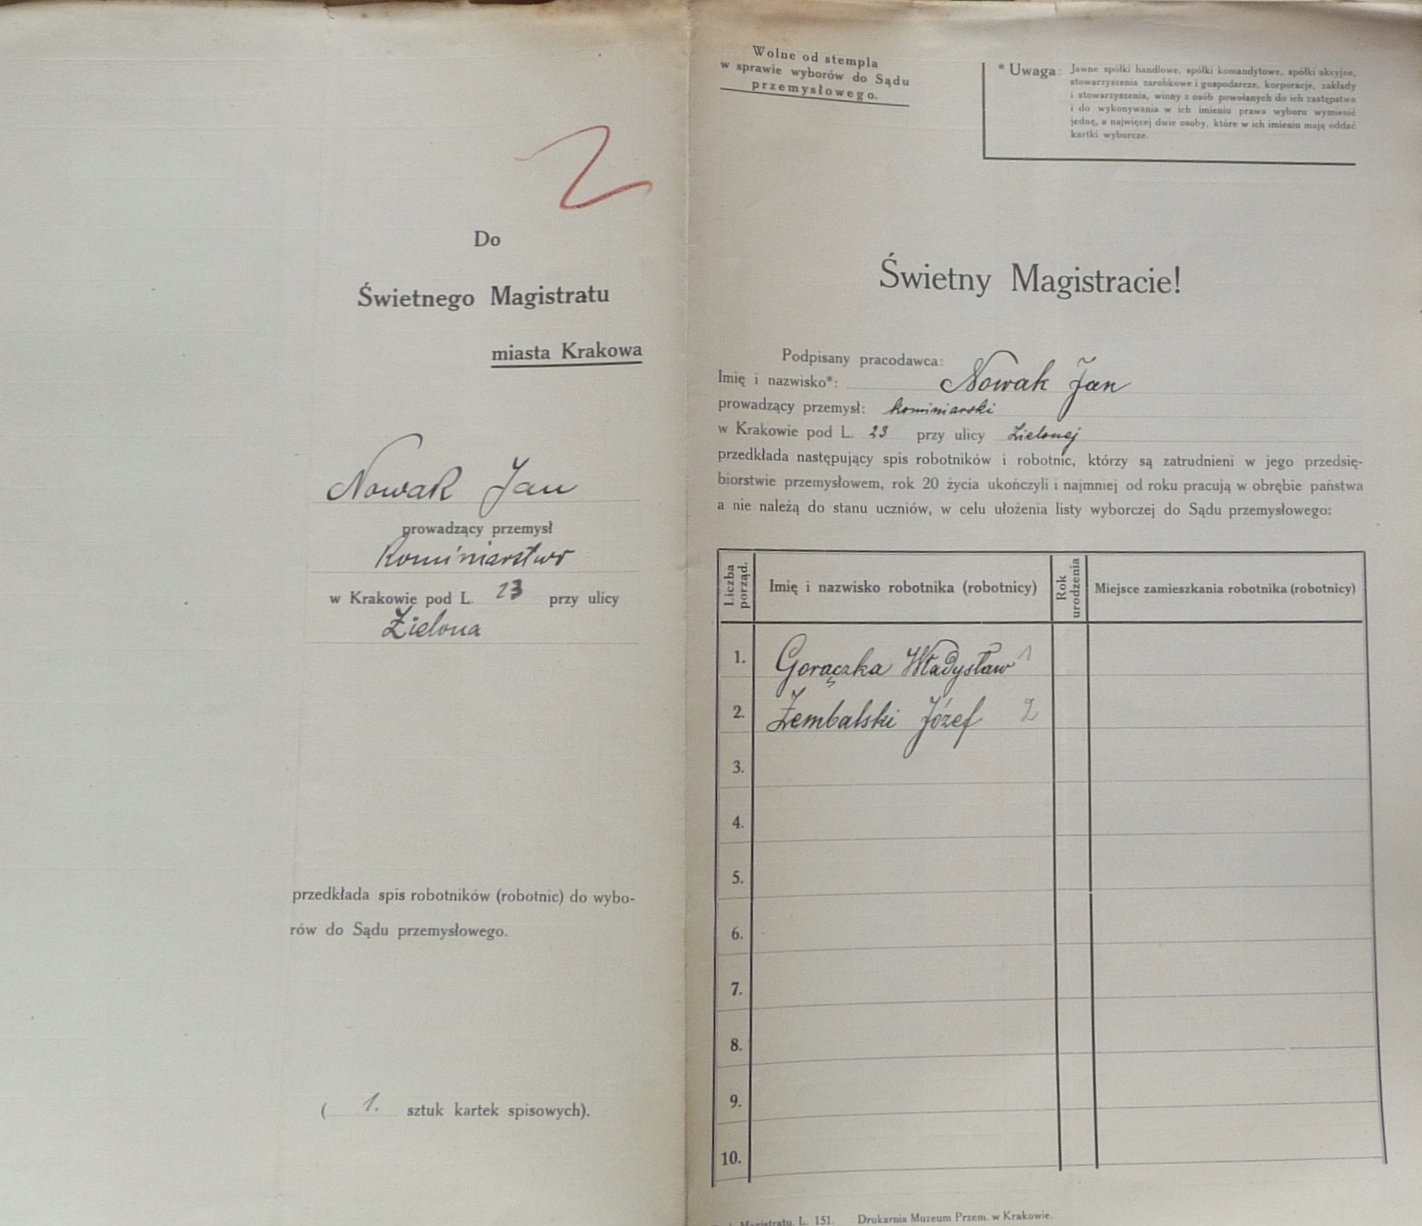 2
Do
Świetnego Magistratu
miasta Krakowa
Nowak Jan
prowadzący przemysł
Kominiarstwo
w Krakowie pod L. 23 przy ulicy
Zielona
przedkłada spis robotników (robotnic) do wybo-
rów do Sądu przemysłowego.
( 1. sztuk kartek spisowych).
Wolne od stempla
w sprawie wyborów do Sądu
przemysłowego.
* Uwaga: Jawne spółki handlowe, spółki komandytowe, spółki akcyjne,
stowarzyszenia zarobkowe i gospodarcze, korporacje, zakłady
i stowarzyszenia, winny z osób powołanych do ich zastępstwa
i do wykonywania w ich imieniu prawa wyboru wymienić
jednę, a najwięcej dwie osoby, które w ich imieniu mają oddać
kartki wyborcze.
Świetny Magistracie!
Podpisany pracodawca:
Imię i nazwisko*: Nowak Jan
prowadzący przemysł: kominiarski
w Krakowie pod L. 23 przy ulicy Zielonej
przedkłada następujący spis robotników i robotnic, którzy są zatrudnieni w jego przedsię-
biorstwie przemysłowem, rok 20 życia ukończyli i najmniej od roku pracują w obrębie państwa
a nie należą do stanu uczniów, w celu ułożenia listy wyborczej do Sądu przemysłowego:
Liczba porząd. Imię i nazwisko robotnika (robotnicy) Rok urodzenia Miejsce zamieszkania robotnika (robotnicy)
1. Gorączka Władysław 1
2. Zembalski Józef 2
3.
4.
5.
6.
7.
8.
9.
10.
Magistratu. L. 151. Drukarnia Muzeum Przem. w Krakowie.